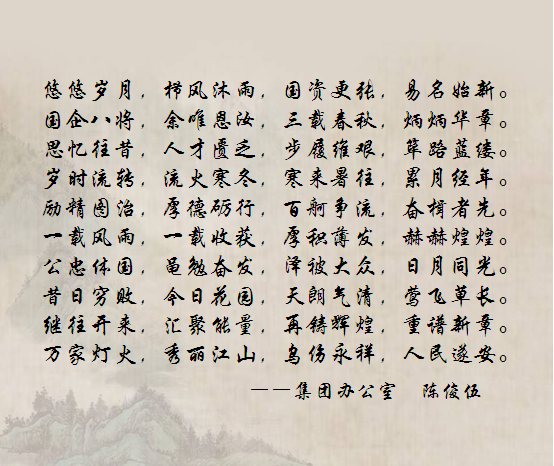 悠悠岁月，栉风沐雨，国资更张，易名始新。
国企八将，余唯恩汝，三载春秋，炳炳华章。
思忆往昔，人才匮乏，步履维艰，筚路蓝缕。
岁时流转，流火寒冬，寒来暑往，累月经年。
励精图治，厚德砺行，百舸争流，奋楫者先。
一载风雨，一载收获，厚积薄发，赫赫煌煌。
公忠体国，黾勉奋发，泽被大众，日月同光。
昔日穷败，今日花园，天朗气清，莺飞草长。
继往开来，汇聚能量，再铸辉煌，重谱新章。
万家灯火，秀丽江山，乌伤永祥，人民遂安。
——集团办公室 陈俊伍